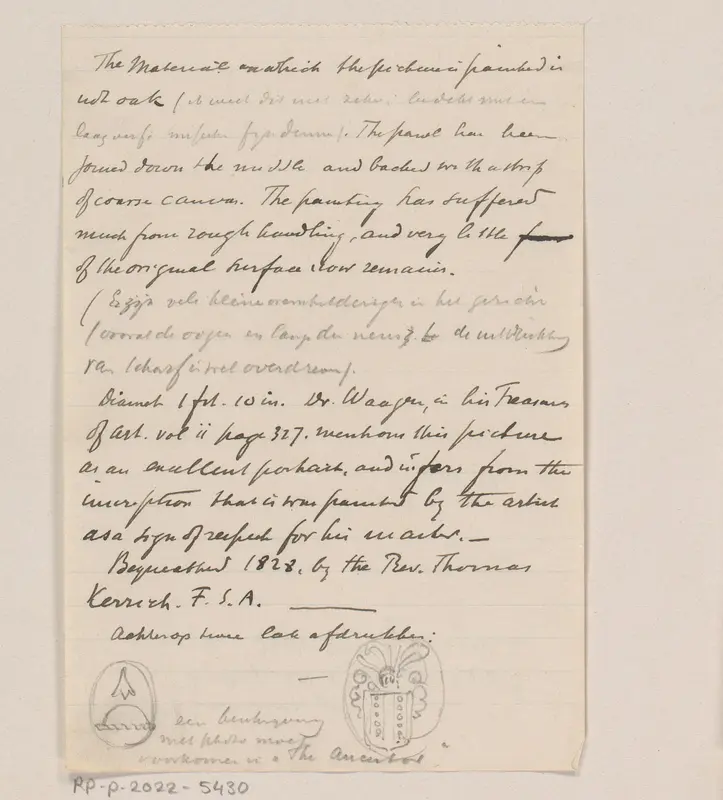 The Material on which the picture is painted is
not oak (ik weet dit niet zeker; bedekt met een
laag verf
The panel has been
joined down the middle and backed with a strip
of coarse canvas. The painting has suffered
much from rough handling, and very little
of the original surface now remains.
(Er zijn vele kleine overschilderingen in het gezicht
(vooral de oogen en langs den neus
de uitdrukking
van Scharf is wel overdreven).
Diamet 1 ft. 10 in. Dr. Waagen, in his Treasures
of Art. vol ii page 327. mentions this picture
as an excellent portrait, and infers from the
inscription that it was painted by the artist
as a sign of respect for his master. —
Bequeathed 1828, by the Rev. Thomas
Kerrich. F. S. A. ———
Achterop twee lak afdrukken:
een
met photo moet
voorkomen in "The Ancestor"
RP-P-2022-5430